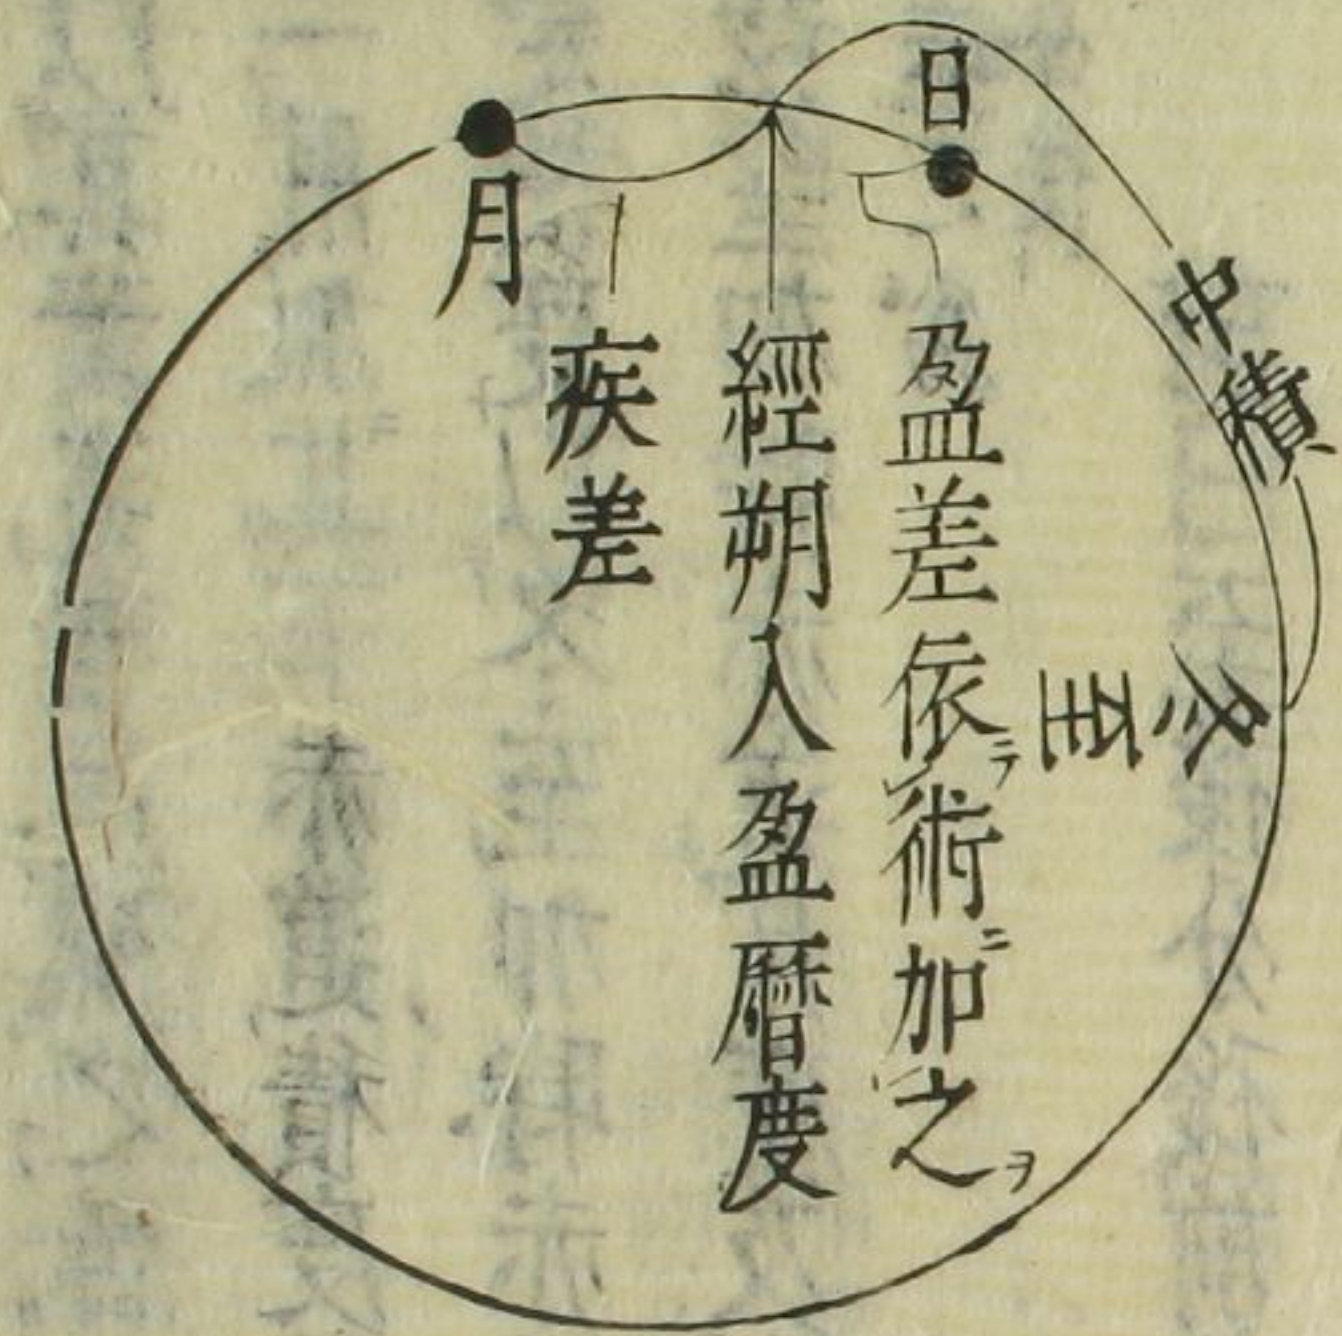 日
中積
冬至
盈差依テ術ニ加之ヲ
經朔入盈暦度
疾差
月